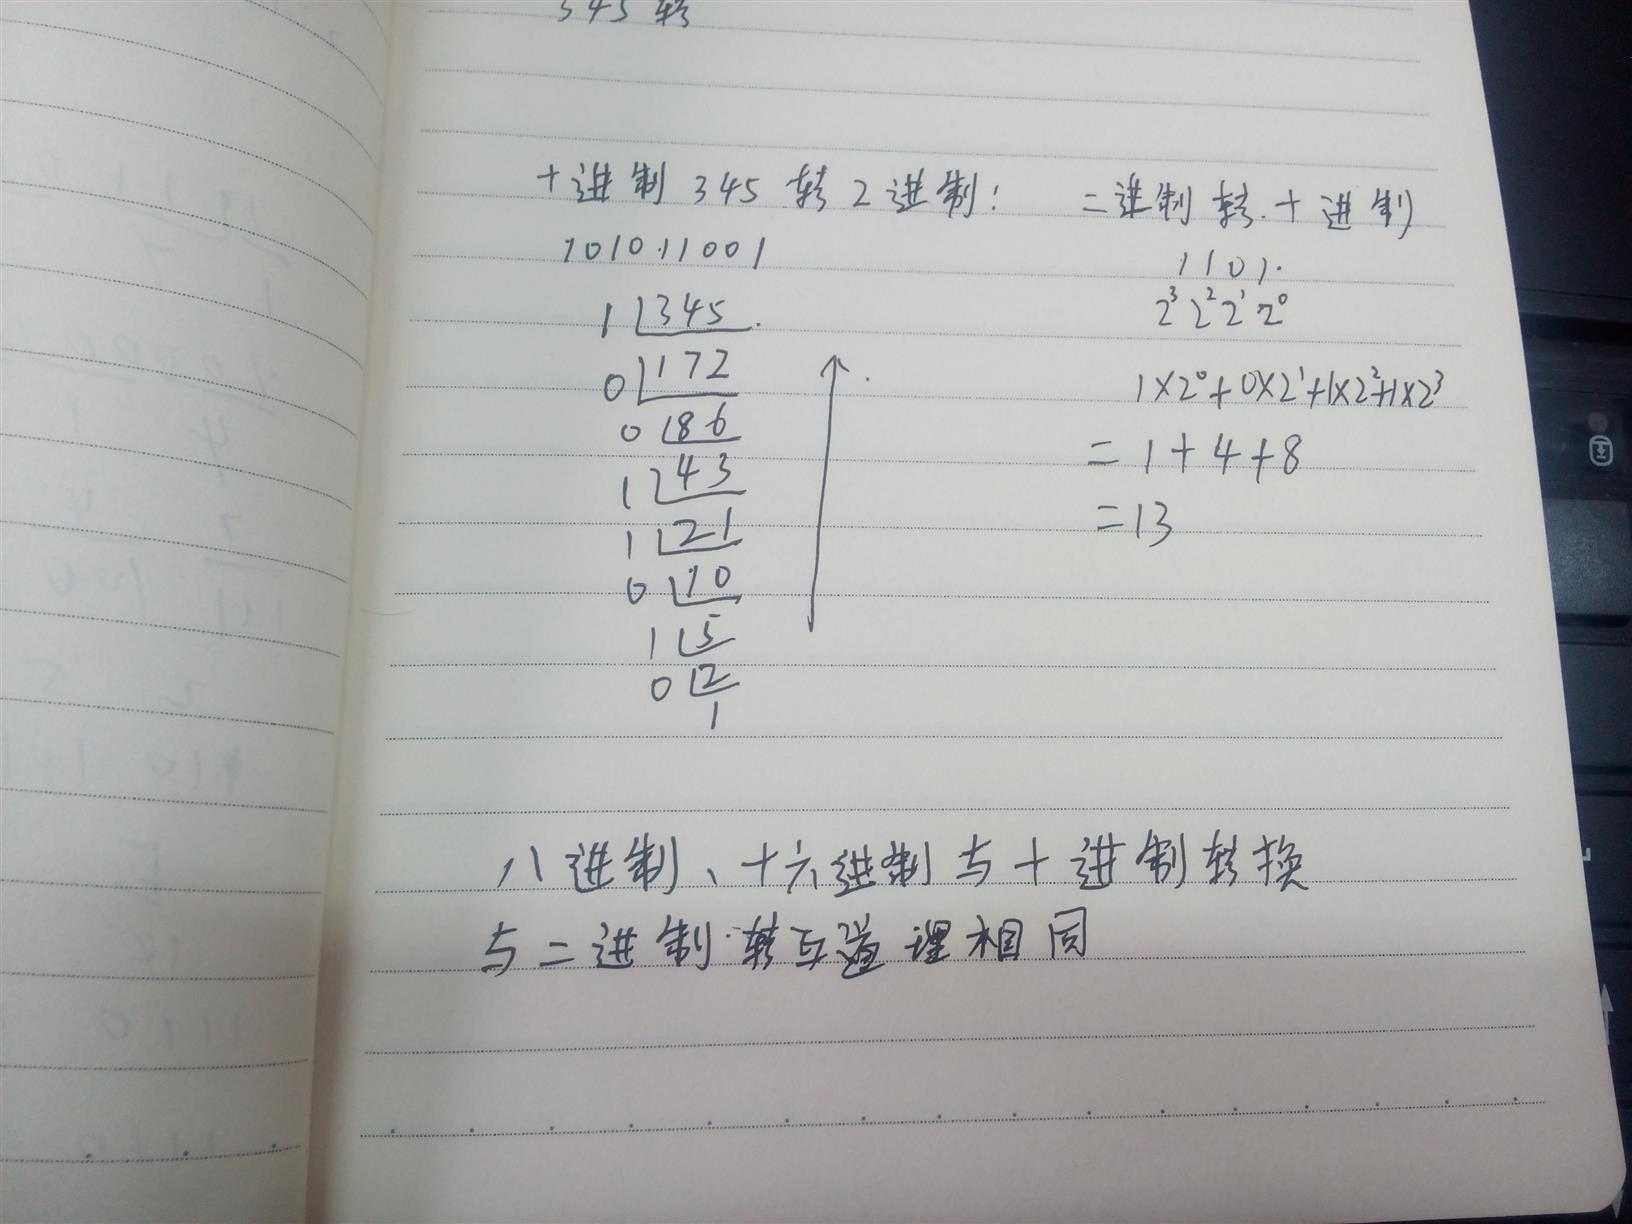 345转
十进制 345 转 2 进制:
101011001
1 345
0 172
0 86
1 43
1 21
0 10
1 5
0 2
1
二进制转十进制
1101.
2³ 2² 2¹ 2⁰
1×2⁰+0×2¹+1×2²+1×2³
=1+4+8
=13
八进制、十六进制与十进制转换
与二进制转互道理相同